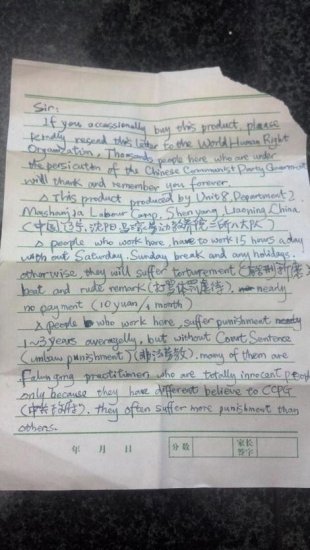 Sir:
If you occassionally buy this product, please
kindly resend this letter to the World Human Right
Organization. Thousands people here who are under
the persicution of the Chinese Communist Party Government
will thank and remember you forever.
△ This product produced by Unit 8, Department 2,
Mashanjia Labour Camp, Shenyang, Liaoning, China
(中国,辽宁,沈阳,马三家劳动教养院二所八大队)
△ people who work here, have to work 15 hours a day
with out Saturday, Sunday break and any holidays,
otherwise, they will suffer torturement
beat and rude remark (打骂体罚虐待), nearly
no payment (10 yuan/1 month)
△ people who work here, suffer punishment
1~3 years averagelly, but without Court Sentence
(unlaw punishment) (非法劳教), many of them are
Falun gong practitioner, who are totally innocent people
only because they have different believe to CCPG
they often suffer more punishment than
others.
年 月 日 分数 家长签字